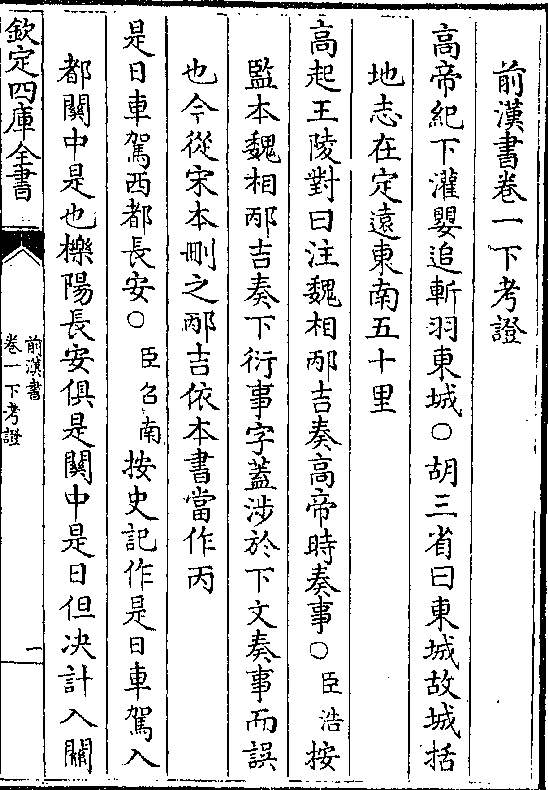 前漢書卷一下考證
高帝紀下灌嬰追斬羽東城○胡三省曰東城故城括
地志在定遠東南五十里
高起王陵對曰注魏相邴吉奏高帝時奏事○臣浩按
監本魏相邴吉奏下衍事字蓋涉於下文奏事而誤
也今從宋本刪之邴吉依本書當作丙
是日車駕西都長安○臣召南按史記作是日車駕入
都關中是也櫟陽長安俱是關中是日但决計入關
欽定四庫全書
前漢書
卷一下考證
一